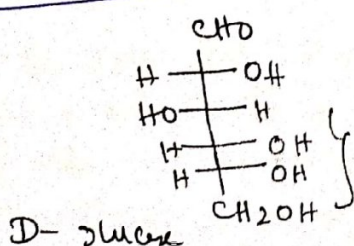 CHO
H OH
HO H
H OH
H OH
CH2OH
D- glucose